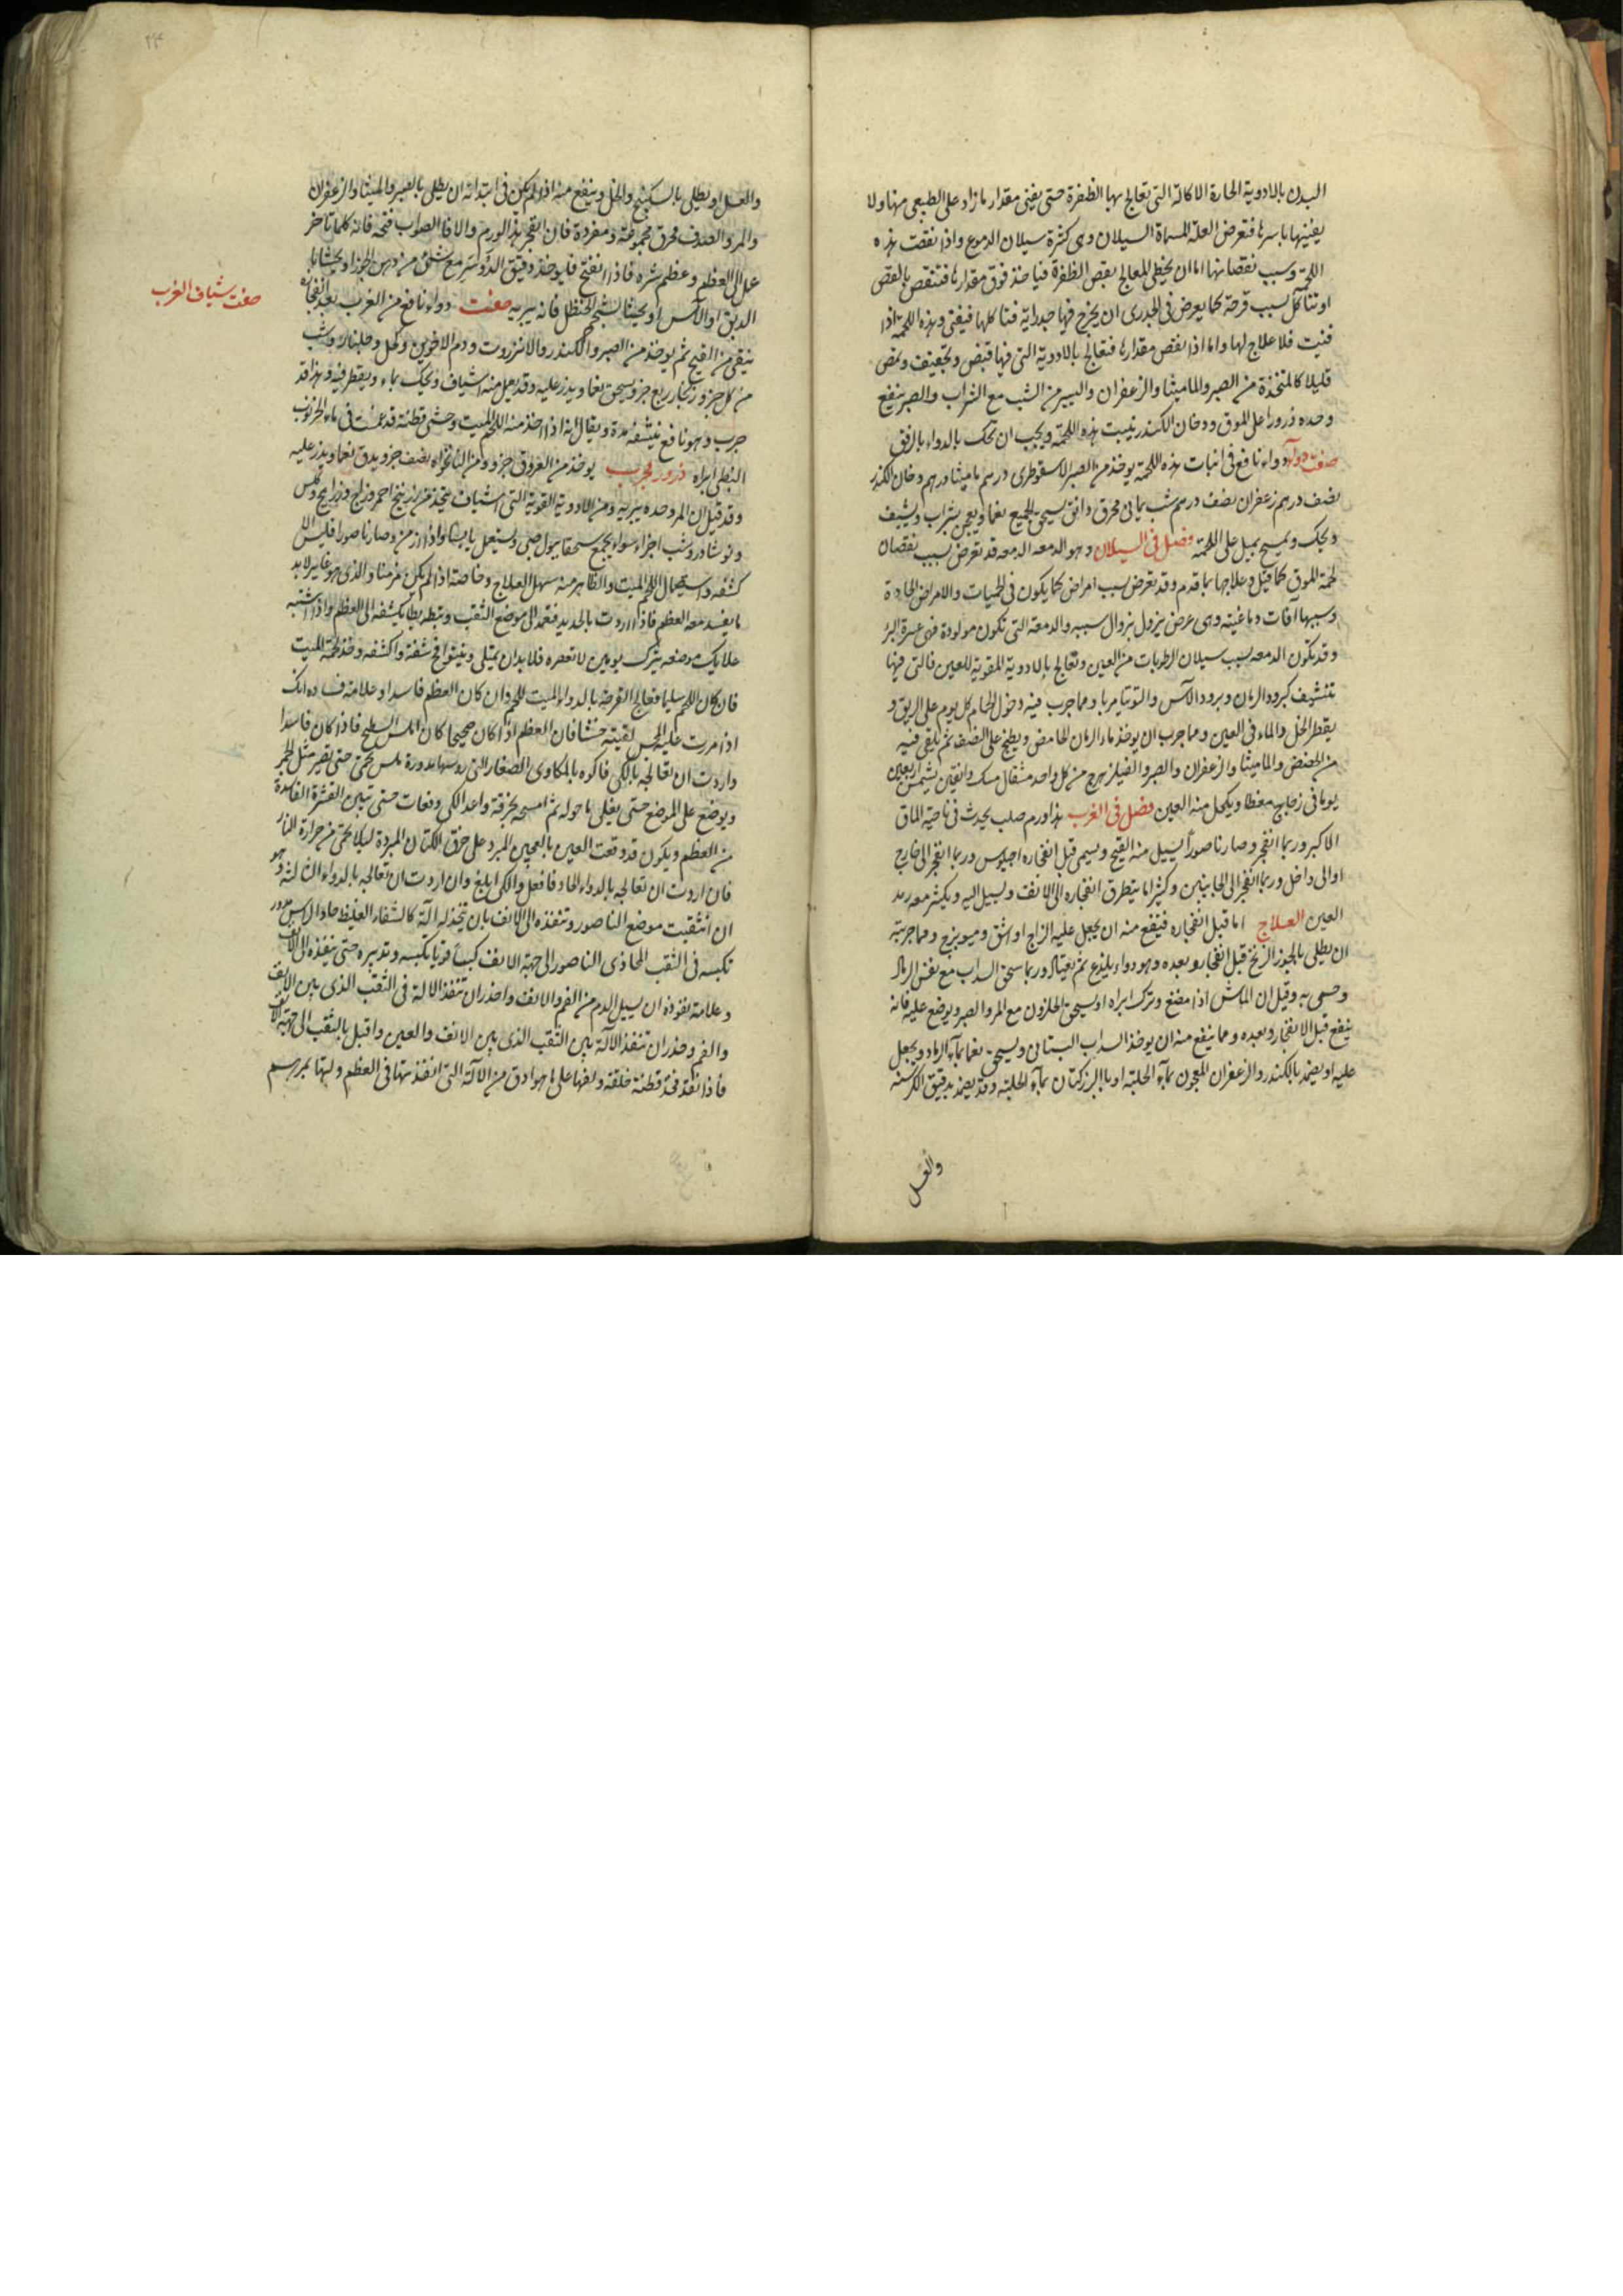 البدن بالادوية الحارة الاكالة التى تعالج بها الظفرة حتى يفنى مقدار ما زاد على الطبيعى منها ولا
يفنيها باسرها فتعرض العلة المسماة السيلان وهى كثرة سيلان الدموع واذا نقصت هذه
اللحمة وسبب نقصانها اما ان يخطى المعالج بقص الظفرة فياخذ فوق مقدارها فتنقص بالقص
او تتأكل بسبب قرحة كما يعرض فى الجدرى ان يخرج فيها جدراية فتاكلها فيفنى وهذه اللحمة اذا
فنيت فلا علاج لها واما اذا نقص مقدارها فتعالج بالادوية التى فيها قبض وتجفيف ومض
قليلا كالمتخذة من الصبر والماميثا والزعفران واليسير من الشب مع الشراب والصبر ينفع
وحده ذرورا على الموق ودخان الكندر ينبت هذه اللحمة ويجب ان تحك بالدواء بالرفق
صفة دواء نافع فى انبات هذه اللحمة يوخذ من الصبر الاسقوطرى درهم ماميثا درهم دخان الكندر
نصف درهم زعفران نصف درهم شب يمانى محرق دانق يسحق الجميع نعما ويعجن بشراب ويشيف
ويحك ويمسح بميل على اللحمة فصل فى السيلان وهو الدمعه الدمعه قد تعرض بسبب نقصان
لحمة الموق كما قيل وعلاجها بما قدم وقد تعرض بسبب امراض كما يكون فى الحميات والامراض الحادة
وسببها آفات دماغية وهى عرض يزول بزوال سببه والدمعة التى تكون مولودة فهى عسرة البرء
وقد تكون الدمعه بسبب سيلان الرطوبات من العين وتعالج بالادوية المقوية للعين فالتى فيها
تنشيف كبرود الرمان وبرود الآس والتوتيا مربا ومما جرب فيه دخول الحمام كل يوم على الريق و
يقطر الخل والماء فى العين ومما جرب ان يوخذ ماء الرمان الحامض ويطبخ على النصف ثم يلقى فيه
من الحضض والماميثا والزعفران والصبر والفيلزهرج من كل واحد مثقال مسك دانقين يشمس اربعين
يوما فى زجاج مغطا ويكحل منه العين فصل فى الغرب هذا ورم صلب يحدث فى ناحية الماق
الاكبر وربما انفجر وصار ناصورا يسيل منه القيح ويسمى قبل انفجاره اجيلوبس وربما انفجر الى خارج
او الى داخل وربما انفجر الى الجانبين وكثيرا ما يتطرق انفجاره الى الانف ويسيل اليه ويكثر معه رمد
العين العلاج اما قبل انفجاره فينفع منه ان يجعل عليه الزاج او اشق وميويزج ومما جربته
ان يطلى بالجوز الزنخ قبل انفجاره وبعده وهو دواء يلذع ثم
وحمى به وقيل ان الماش اذا مضغ وترك ابراه او يسحق الحلزون مع المر والصبر ويوضع عليه فانه
ينفع قبل الانفجار وبعده ومما ينفع منه ان يوخذ السداب البستانى ويسحق نعما بمآء الرماد ويجعل
عليه او يضمد بالكندر والزعفران المعجون بمآء الحلبة او بالبزركتان بمآء الحلبة وقد يضمد بدقيق الكرسنة
والعسل
والعسل او يطلى بالسكبينج والخل وينفع منه اذا لم يكن فى ابتدائه ان يطلى بالصبر والميثا والزعفران
والمر والصدف محرق مجموعة ومفردة فان انفجر هذا الورم والا فالصواب فتحه فانه كلما تاخر
عمل الى العظم وعظم شره فاذا انفتح فليوخذ دقيق الدوسر مع شئ من دهن الجوز او يحشى
الدبق او الآس او يحشا بشحم الحنظل فانه يبريه صفت دواء نافع من الغرب بعد انفجاره
ينقى من القيح ثم يوخذ من الصبر والكندر والانزروت ودم الاخوين وكحل وجلنار وشب
من كل جزو زنجار ربع جزو يسحق نعما ويذر عليه وقد يعمل منه اشياف ويحك بماء ويقطر فيه وهذا قد
جرب وهو نافع ينشفه مدة ويقال انه اذا اخذ منه اللحم الميت وحشى قطنة قد غمست فى ماء الخرنوب
النبطى ابراه ذرور مجرب يوخذ من العروق جزو ومن النانخواه نصف جزو يدق نعما ويذر عليه
وقد قيل ان المر وحده يبريه ومن الادوية القوية التى اشياف يتخذ من زرنيخ احمر وزاج وذراريح وكلس
ونوشادر وشب اجزاء سواء يجمع سحقا ببول صبى ويستعمل يابسا واذا ازمن وصار ناصورا فليس الا
كشفه واستعمال اللحم الميت والظاهر منه سهل العلاج وخاصة اذا لم يكن مزمنا والذى هو غاير لا بد
ما يفسد معه العظم فاذا اردت بالحديد فتعمد الى موضع الثقب وتبطه بطا يكشفه الى العظم واذا اشتبه
عليك موضعه يترك يومين لا تعصره فلا بد ان يمتلى وينتو فشقه واكشفه وخذ لحمه الميت
فان كان اللحم سليما فعالج القرحة بالدواء المنبت للحم وان كان العظم فاسدا وعلامة فساده انك
اذا مررت عليه المجس لقيته خشنا فان العظم اذا كان صحيحا كان املس السطح فاذا كان فاسدا
واردت ان تعالجه بالكى فاكوه بالمكاوى الصغار التى روسها مدورة ملس تحمى حتى تصير مثل الجمر
ويوضع على الموضع حتى يغلى ما حوله ثم امسحه بخرقة واعد الكى دفعات حتى تبين القشرة الفاسدة
من العظم ويكون قد وقيت العين بالعجين المبرد على خرق الكتان المبردة لكيلا تحمى من حرارة النار
فان اردت ان تعالجه بالدواء الحاد فافعل والكى ابلغ وان اردت ان تعالجه بالدواء الثالثة وهو
ان تثقب موضع الناصور وتنفذه الى الانف بان تتخذ له آلة كالشفاء الغليظ حاد الراس مدور
تكبسه فى الثقب المحاذى الناصور الى جهة الانف كبسا قويا بكبسه وتديره حتى ينفذه الى الانف
وعلامة نفوذه ان يسيل الدم من الفم والانف واحذر ان تنفذ الالة فى الثقب الذى بين الانف
والفم وحذر ان تنفذ الآلة بين الثقب الذى بين الانف والعين واقبل بالثقب الى جهة الانف
فأذا نفذ فخذ قطنة خلقة ولفها على ما هو ادق من الآلة التى انفذتها فى العظم ولتها بمرهم
صفت شياف الغرب
۲۴